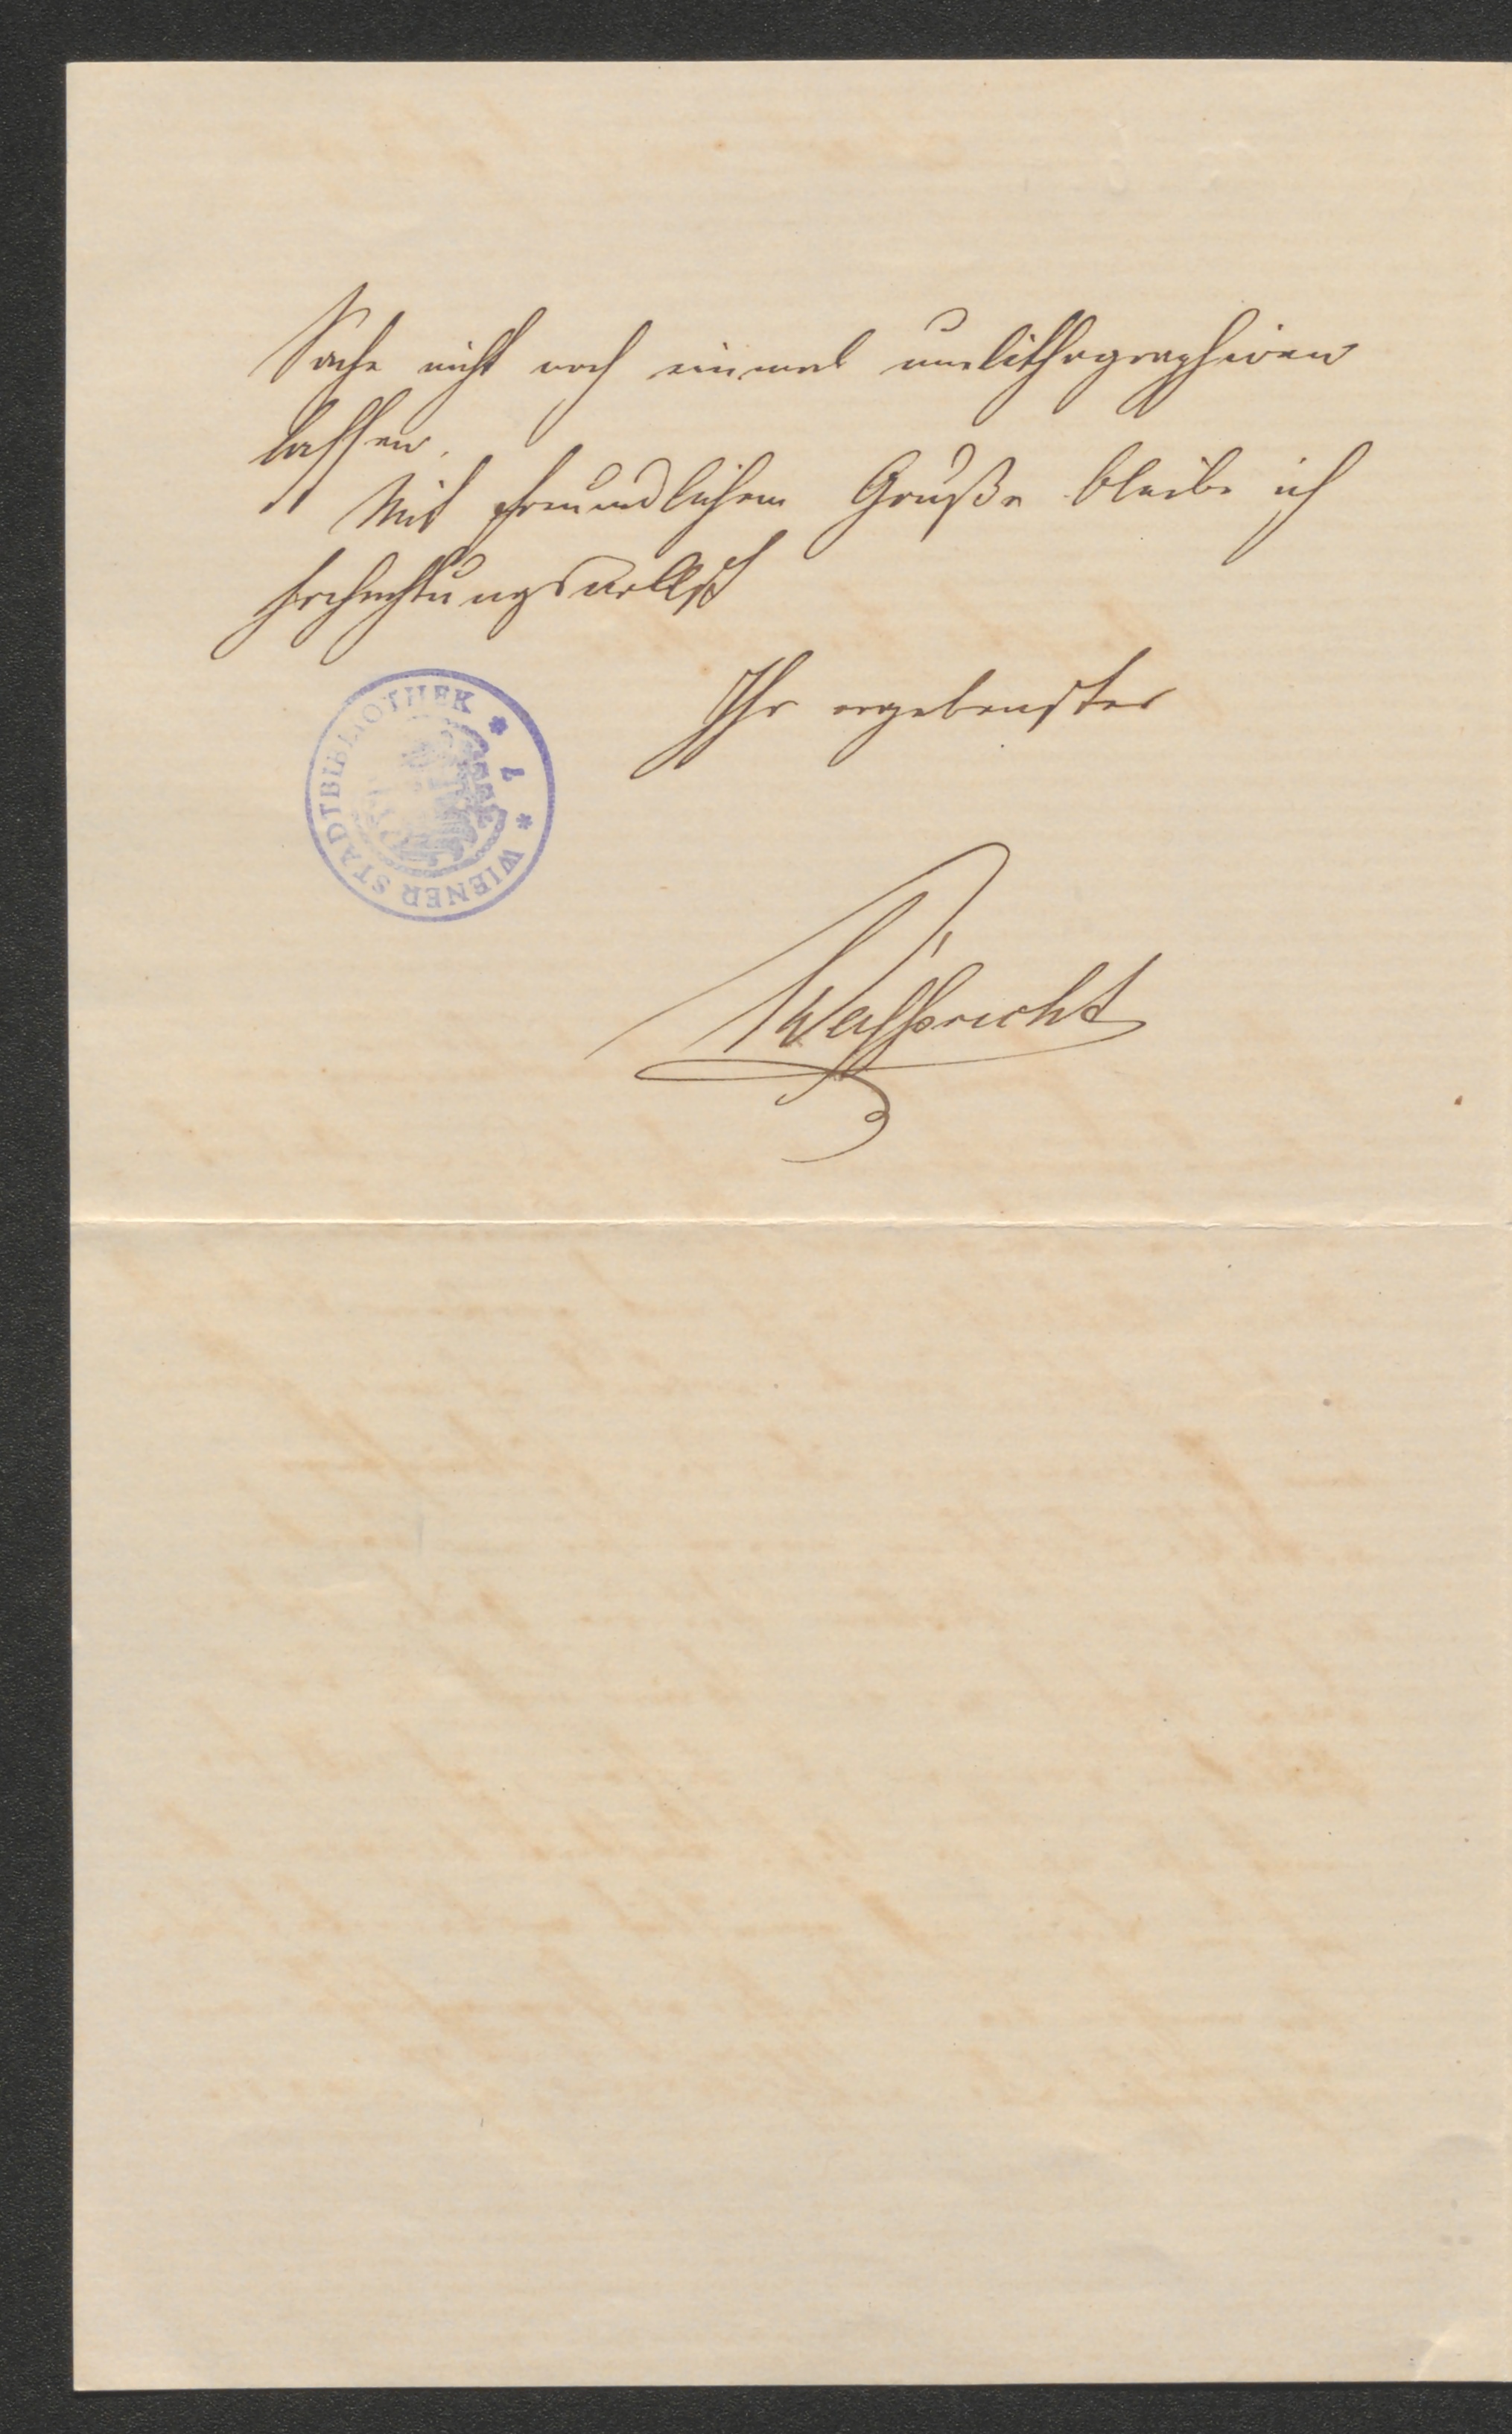 Sache nicht noch einmal umlithographiren
lassen.
Mit freundlichem Gruße bleibe ich
hochachtungsvollst
Ihr ergebenster
WIENER STADTBIBLIOTHEK * L *